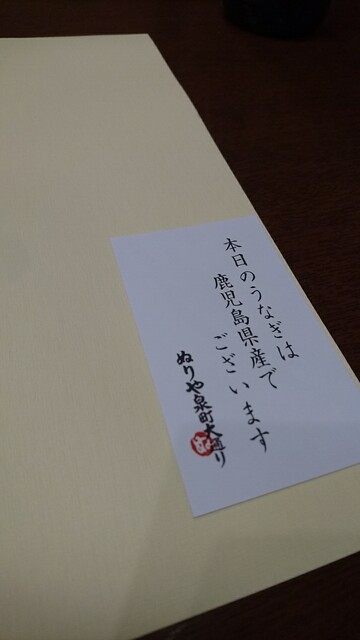 本日のうなぎは
鹿児島県産で
ございます
ぬりや泉町大通り